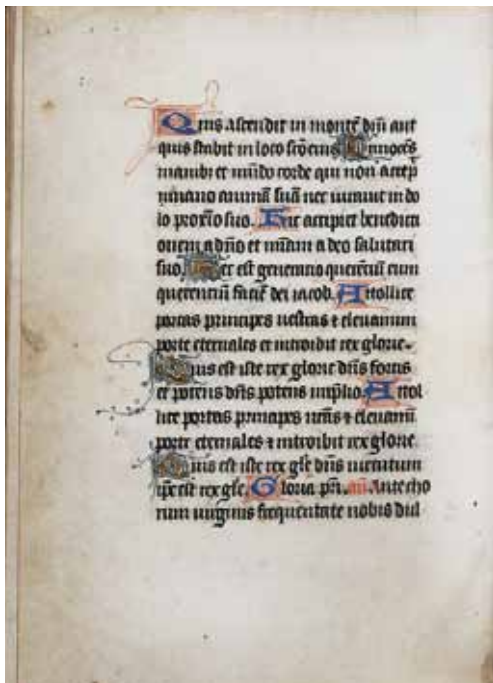 Quis ascendit in montē dn̄i aut
quis stabit in loco sc̄o eius Innocēs
manib; et mūdo corde qui non accep̄
in uano animā suā nec iurauit in do
lo proxīo suo. Hic accipiet benedicti
onem a dn̄o et mīam a deo salutari
suo. Hec est generatio querētiū eum
querentiū faciē dei iacob. Attollite
portas principes uestras ⁊ eleuamini
porte eternales et introibit rex glorie.
Quis est iste rex glorie dn̄s fortis
et potens dn̄s potens in p̄lio. Attol
lite portas principes ur̄as ⁊ eleuamī
porte eternales ⁊ introibit rex glorie
Quis est iste rex gl̄e dn̄s uirtutum
ip̄e est rex gl̄e. Gloria pr̄i. an̄. Ante tho
rum uirginis frequentate nobis dul